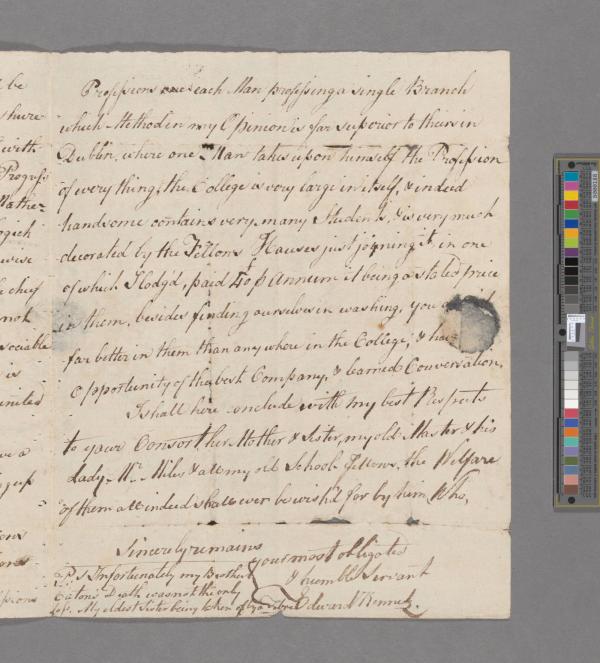 be
with
Progress
chief
not
sociable
is
united
Professions each Man professing a single Branch
which Method in my Opinion is far superior to theirs in
Dublin, where one Man takes upon himself the Profession
of every thing, the College is very large in itself, & indeed
handsome contains very many Students, & is very much
decorated by the Fellows Houses just joyning it, in one
of which I lodg'd, paid 40 p Annum it being a stated price
in them, besides finding ourselves in washing, you
far better in them than any where in the College, & have
opportunity of the best Company, & learned Conversation,
I shall here conclude with my best Respects
to your Consort, her Mother & Sister, my old Master & his
Lady, Mr. Miles & all my old School Fellows, the Welfare
of them all indeed shall ever be wish'd for by him, Who,
Sincerely remains
your most obligated
& humble Servant
Edward Kenneth.
P.S Unfortunately my Brother
Eatons Death was not the only
loss. My eldest Sister being taken of by a